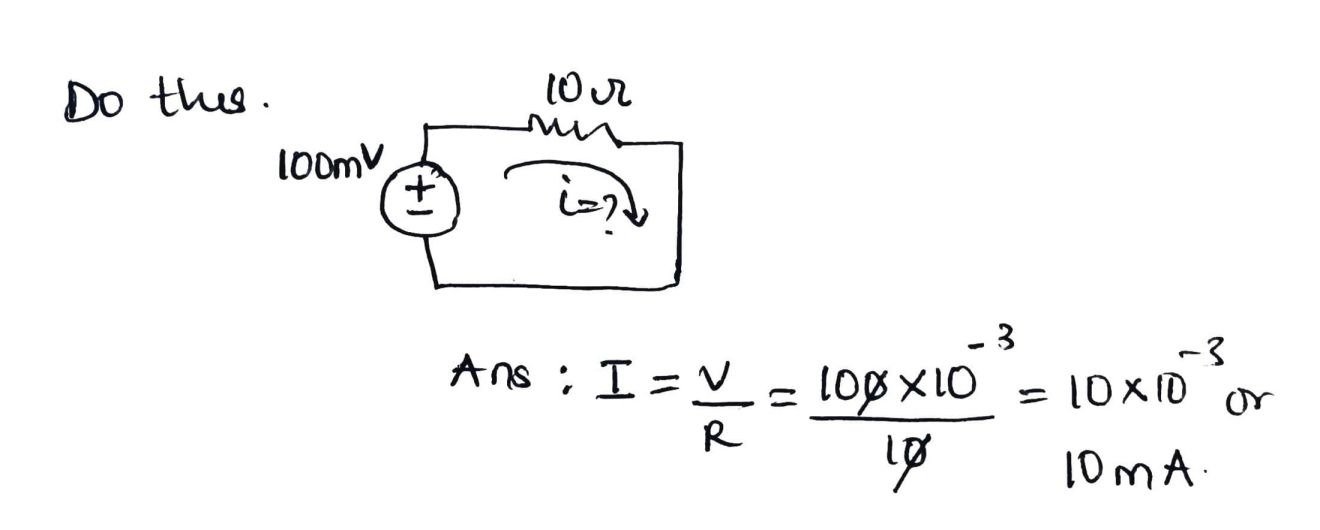 Do this.
10Ω
100mV
+
−
i=?
Ans : I = V/R = 100×10⁻³/10 = 10×10⁻³ or
10mA.